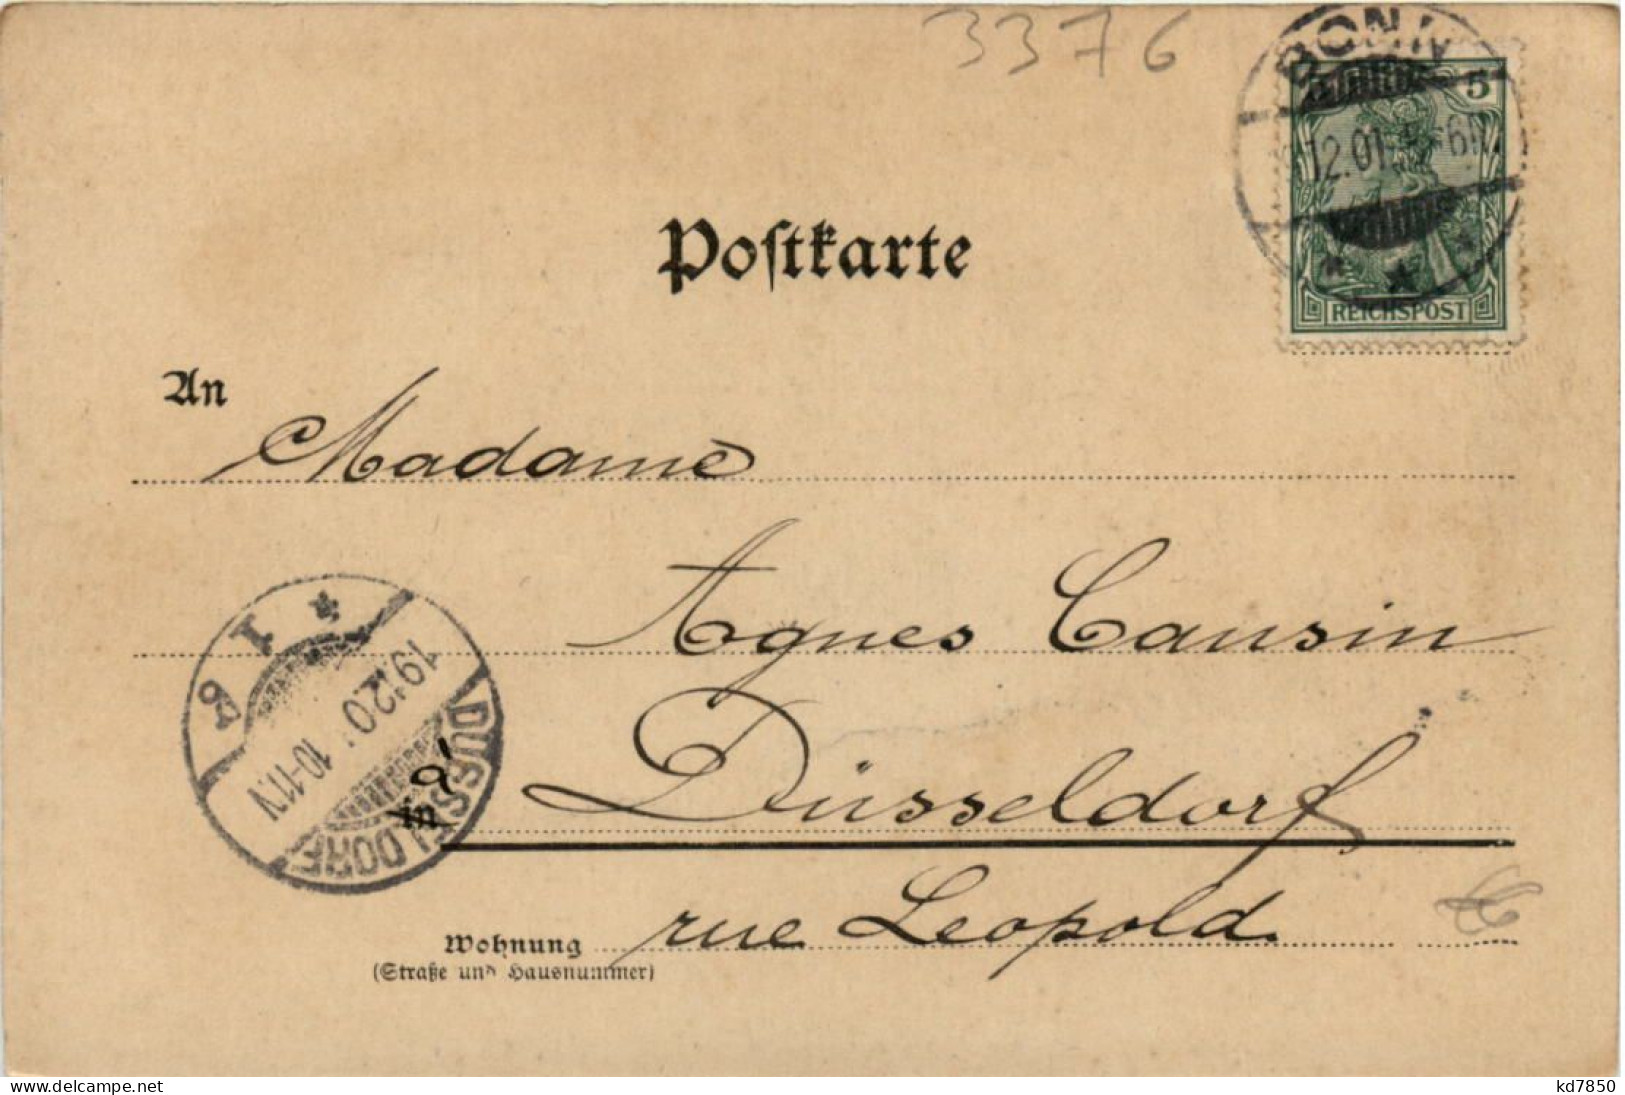 3376
BONN
5
12.01
REICHSPOST
Poſtkarte
An
Madame
Agnes Causin
19.12.0
10-11N
DUESSELDORF
in
à Düsseldorf
Wohnung rue Leopold.
(Straße und Hausnummer)
www.delcampe.net
kd7850